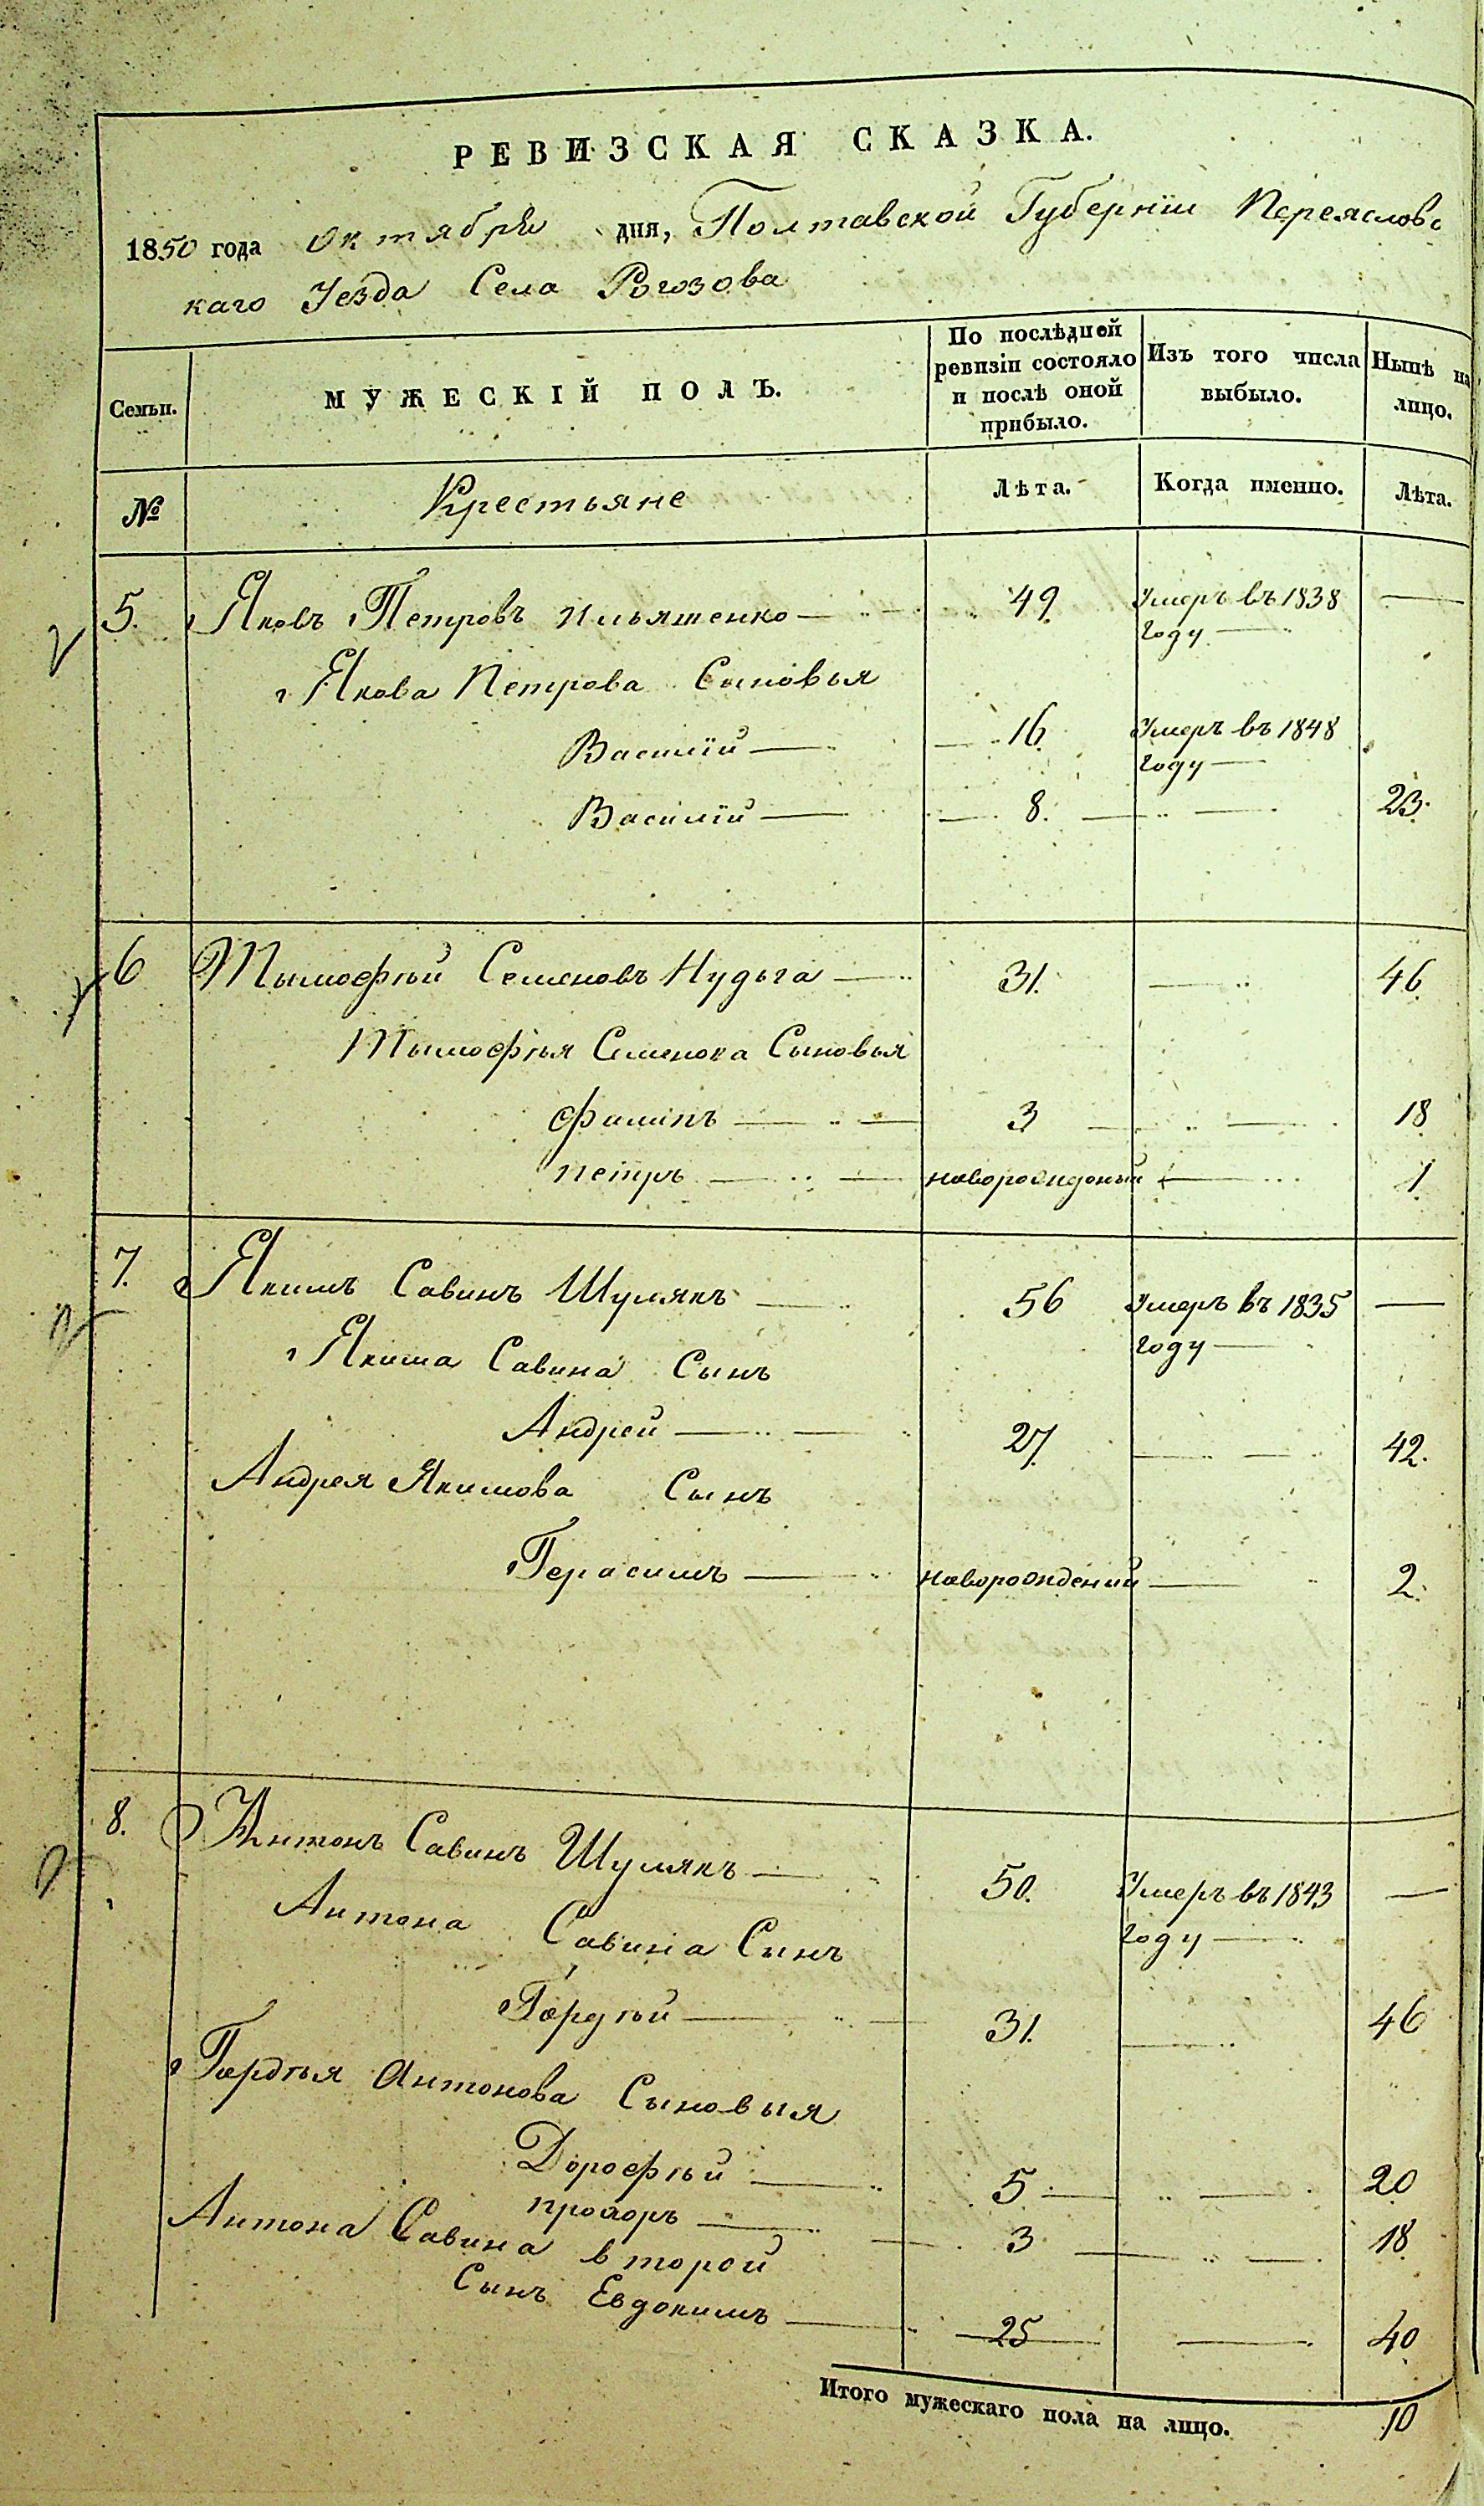 РЕВИЗСКАЯ СКАЗКА.
1850 года Октября дня, Полтавской Губернїи Переяславс
каго Уезда Села Рогозова
Семьи.
МУЖЕСКІЙ ПОЛЪ.
По послѣдней
ревизіи состояло
и послѣ оной
прибыло.
Изъ того числа
выбыло.
Нынѣ на
лицо.
№
Крестьяне
Лѣта.
Когда именно.
Лѣта.
5. Яковъ Петровъ Ильяшенко — 49. Умеръ въ 1838 —
году —
Якова Петрова Сыновья
Василїй — 16. Умеръ въ 1848
году —
Василїй — 8. — 23.
6 Тымофѣй Семеновъ Нудьга — 31. — 46
Тымофѣя Семенова Сыновья
Филипъ — 3 — 18
петръ — новорожденый — 1
7. Якимъ Савинъ Шулякъ — 56 Умеръ въ 1835 —
году —
Якима Савина Сынъ
Андрей — 27. — 42.
Андрея Якимова Сынъ
Герасимъ — новорождений — 2.
8. Антонъ Савинъ Шулякъ — 50. Умеръ въ 1843 —
году —
Антона Савина Сынъ
Гордѣй — 31. — 46
Гордѣя Антонова Сыновья
Дорофѣй — 5 — 20
прохоръ — 3 — 18
Антона Савина второй
Сынъ Евдокимъ — 25 — 40
Итого мужескаго пола на лицо. 10